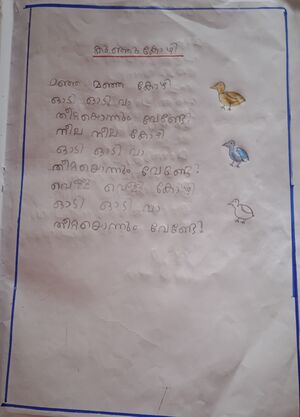 മഞ്ഞ മഞ്ഞ കോഴി
ഓടി ഓടി വാ
തീറ്റയൊന്നും വേണ്ടേ?
നീല നീല കോഴി
ഓടി ഓടി വാ
തീറ്റയൊന്നും വേണ്ടേ?
വെള്ള വെള്ള കോഴി
ഓടി ഓടി വാ
തീറ്റയൊന്നും വേണ്ടേ?